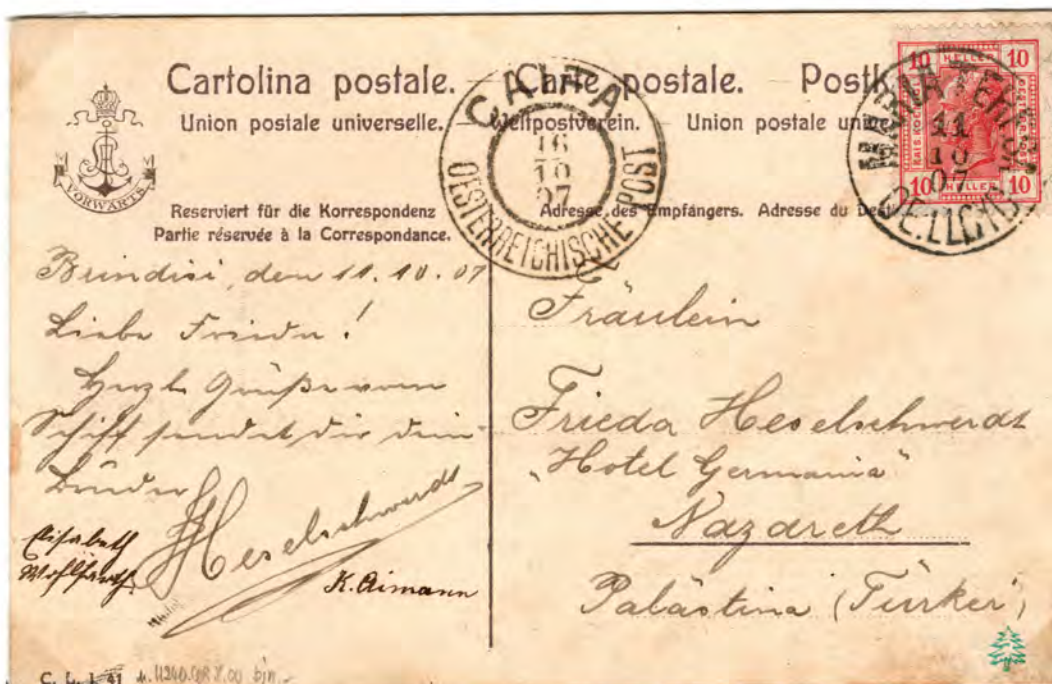 Cartolina postale. — Carte postale. — Postk
Union postale universelle. — Weltpostverein. — Union postale uni
VORWÄRTS
Reserviert für die Korrespondenz
Partie réservée à la Correspondance.
Adresse des Empfängers. Adresse du Des
CAIFA
16
10
07
OESTERREICHISCHE POST
10 HELLER 10
10 HELLER 10
MARIA TERESA
11
10
07
Brindisi, den 11.10.07
Liebe Frieda!
Herzl. Grüße vom
Schiff sendet dir dein
Bruder
Heselschwerdt
Elisabeth
Wohlfarth
K. Aimann
Fräulein
Frieda Heselschwerdt
„Hotel Germania"
Nazareth
Palästina (Türkei)
C. L. I 41